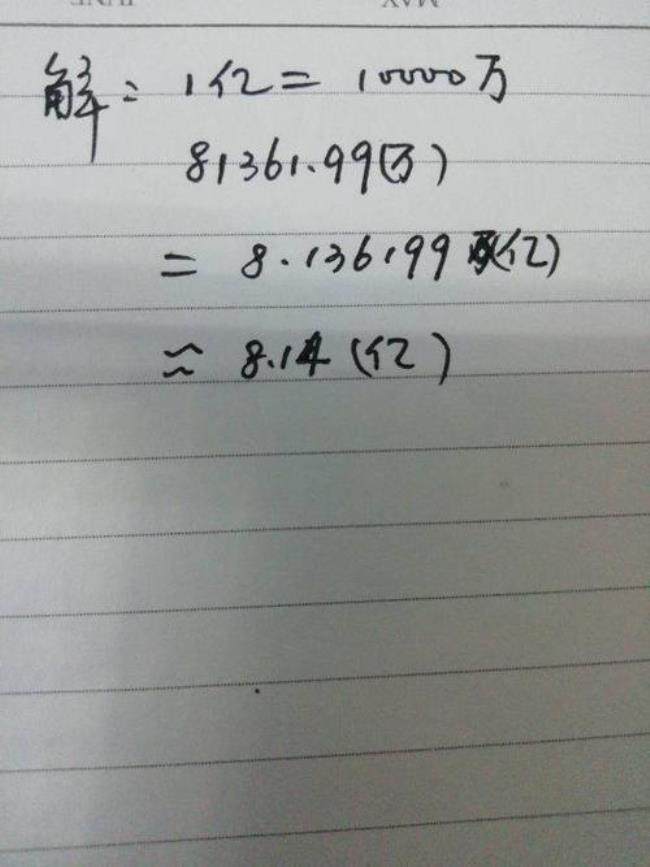 解：1亿＝10000万
81361.99(万)
＝8.136199(亿)
≈8.14(亿)